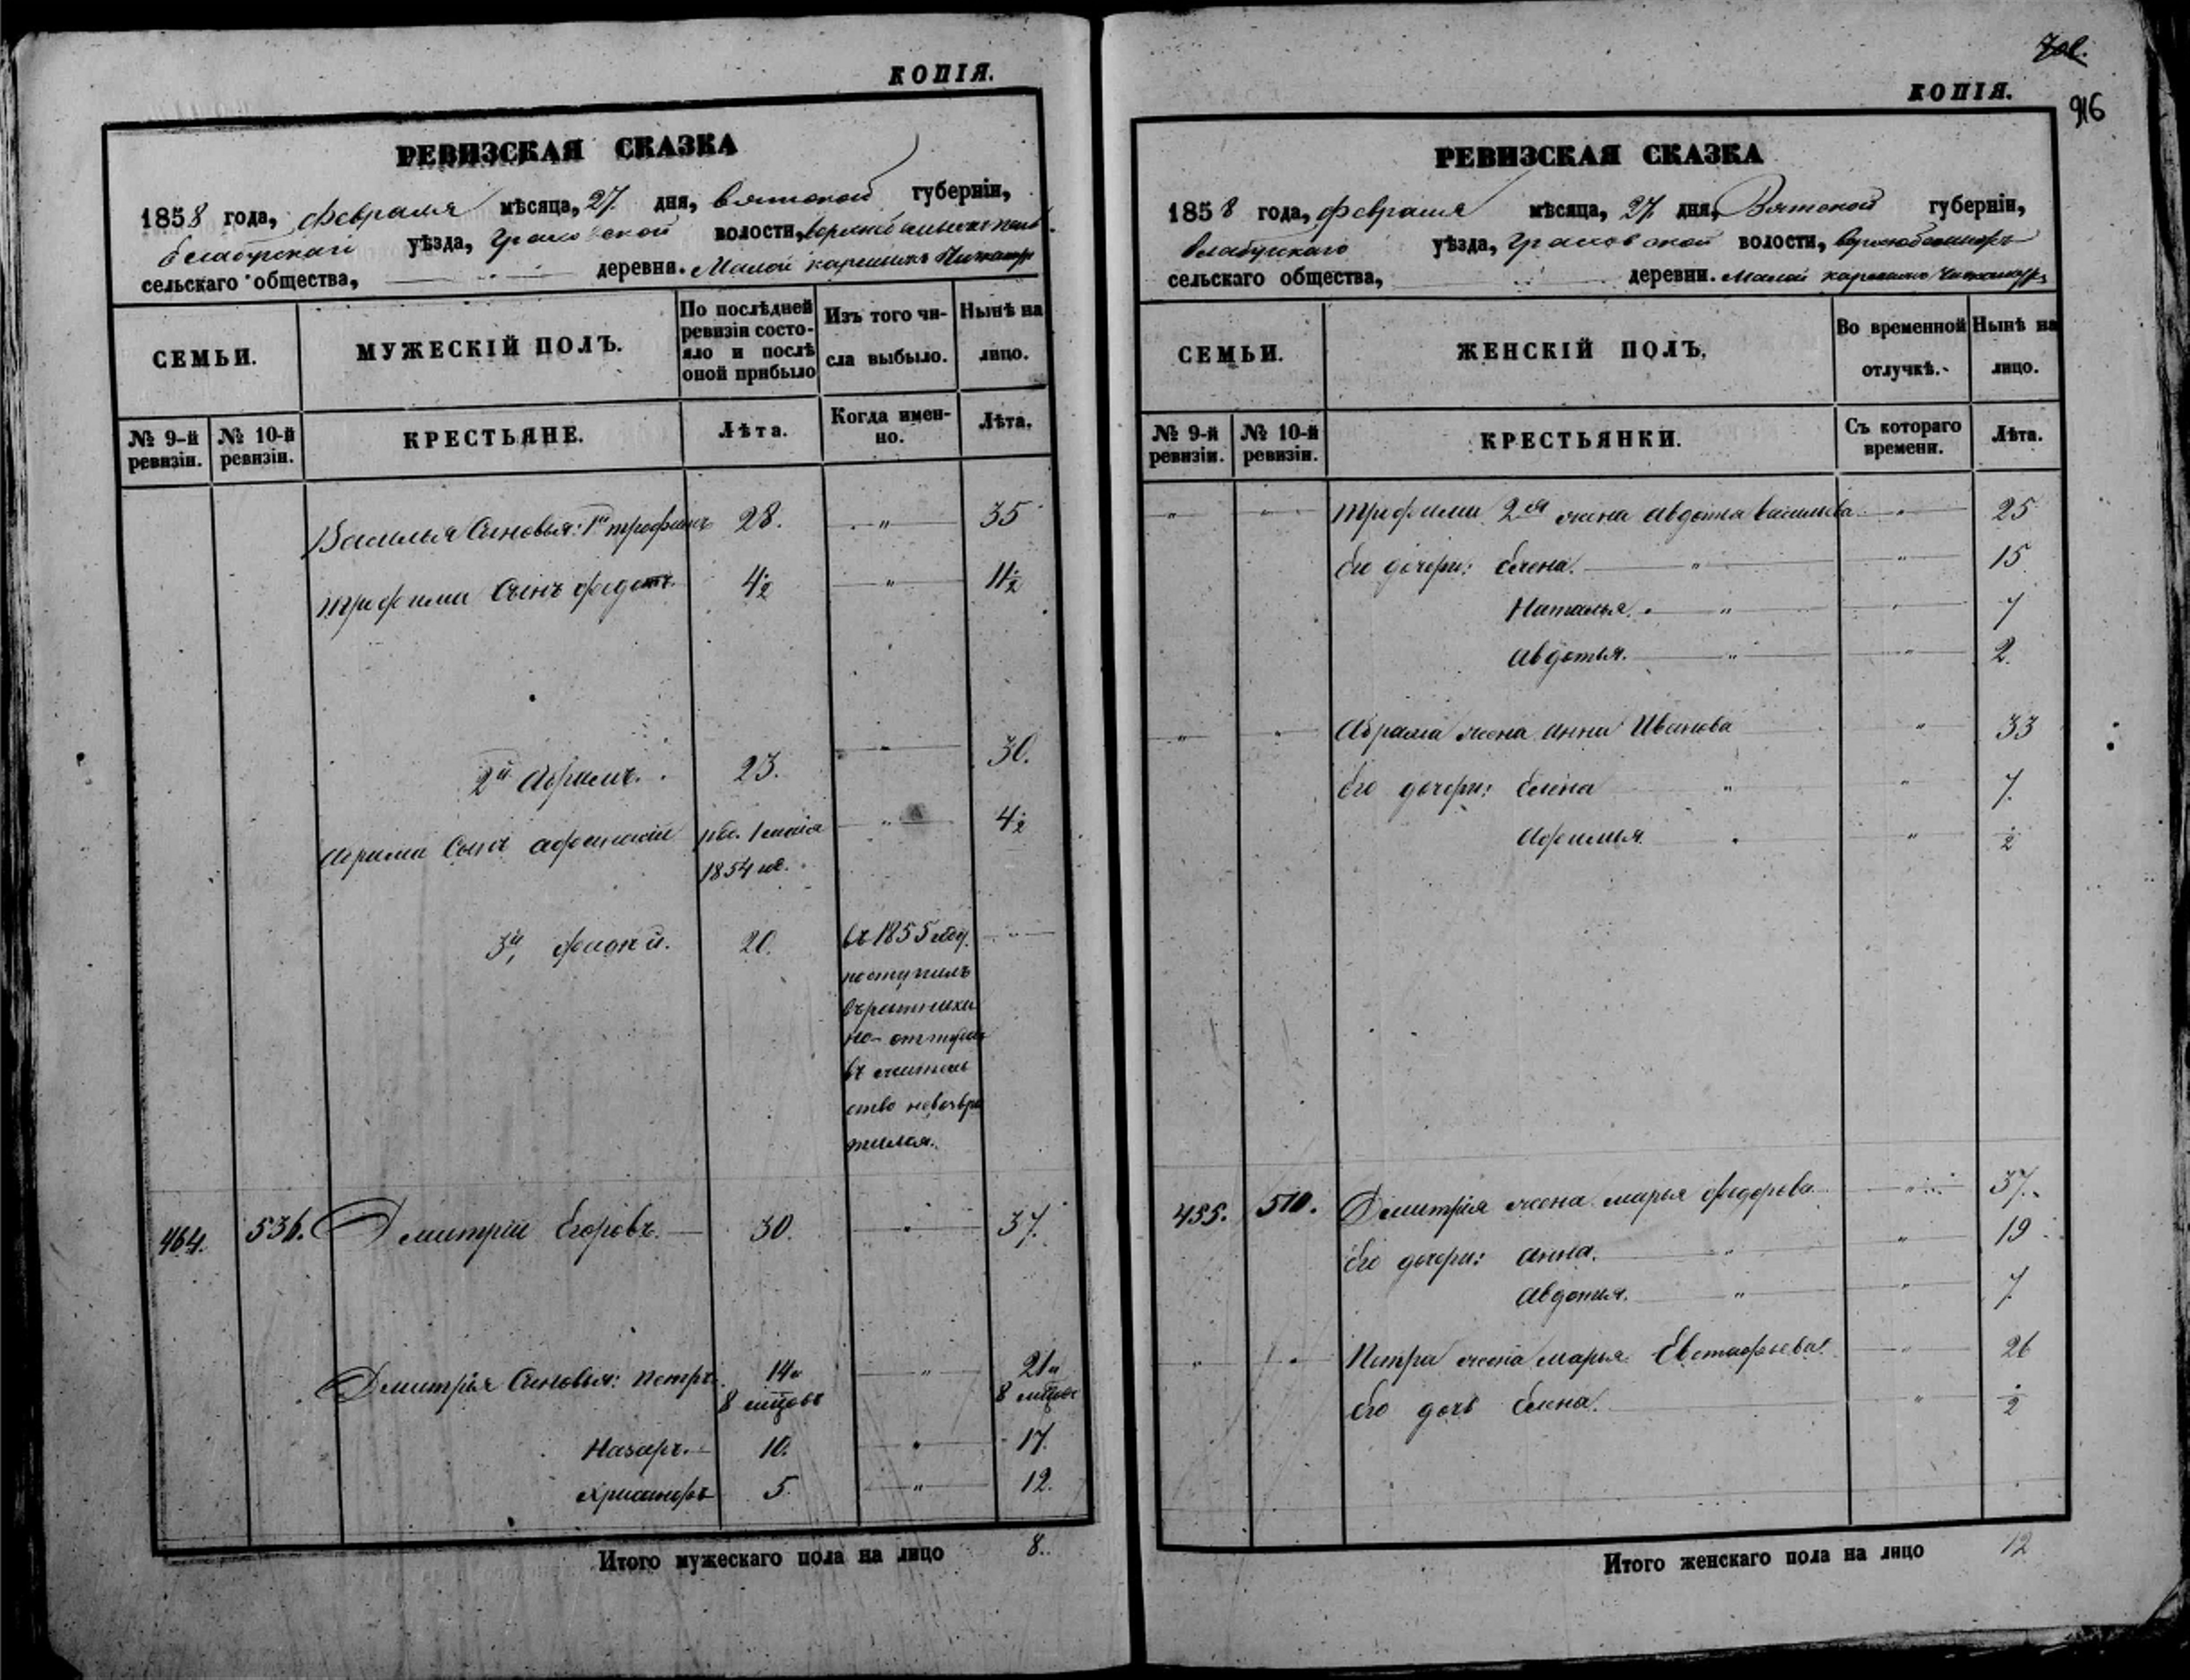 КОПІЯ.
РЕВИЗСКАЯ СКАЗКА
1858 года, февраля мѣсяца, 27 дня, вятской губерніи,
елабугскаго уѣзда, граховской волости,
сельскаго общества, деревня. Малой
СЕМЬИ. МУЖЕСКІЙ ПОЛЪ. По послѣдней ревизіи состояло и послѣ оной прибыло Изъ того числа выбыло. Нынѣ на лицо.
№ 9-й ревизіи. № 10-й ревизіи. КРЕСТЬЯНЕ. Лѣта. Когда именно. Лѣта.
Василья Сыновья: 1й трофимъ 28. " 35
трофима Сынъ федотъ 4½ " 11½
2й Абрамъ. 23. " 30.
Абрама Сынъ афонасій " 4½
1854 го.
3й фадѣй. 20. въ 1855 году "
поступилъ
въ ратники
но оттуда
въ житель
ство невозвра
тился.
464. 536. Дмитрій Егоровъ. 30. " 37.
Дмитрія Сыновья: петръ. 14 и " 21 и
8 мѣсцовъ 8 мѣсцовъ
Назаръ. 10. " 17.
Хрисанфъ 5. " 12.
Итого мужескаго пола на лицо 8.
702.
КОПІЯ.
916
РЕВИЗСКАЯ СКАЗКА
1858 года, февраля мѣсяца, 27 дня, Вятской губерніи,
елабугскаго уѣзда, Граховской волости,
сельскаго общества, деревни. Малой
СЕМЬИ. ЖЕНСКІЙ ПОЛЪ. Во временной отлучкѣ. Нынѣ на лицо.
№ 9-й ревизіи. № 10-й ревизіи. КРЕСТЬЯНКИ. Съ котораго времени. Лѣта.
" " трофима 2я жена авдотья васильева " 25
Его дочери: елена. " " 15
Наталья. " " 7
авдотья. " " 2.
" " Абрама жена анна Иванова " 33
Его дочери: Елена " " 7.
" " ½
455. 510. Дмитрія жена марья федорова " 37.
Его дочери: анна. " " 19
авдотья. " " 7.
" " Петра жена марья Евстафьева " 26
Его дочь Елена. " ½
Итого женскаго пола на лицо 12